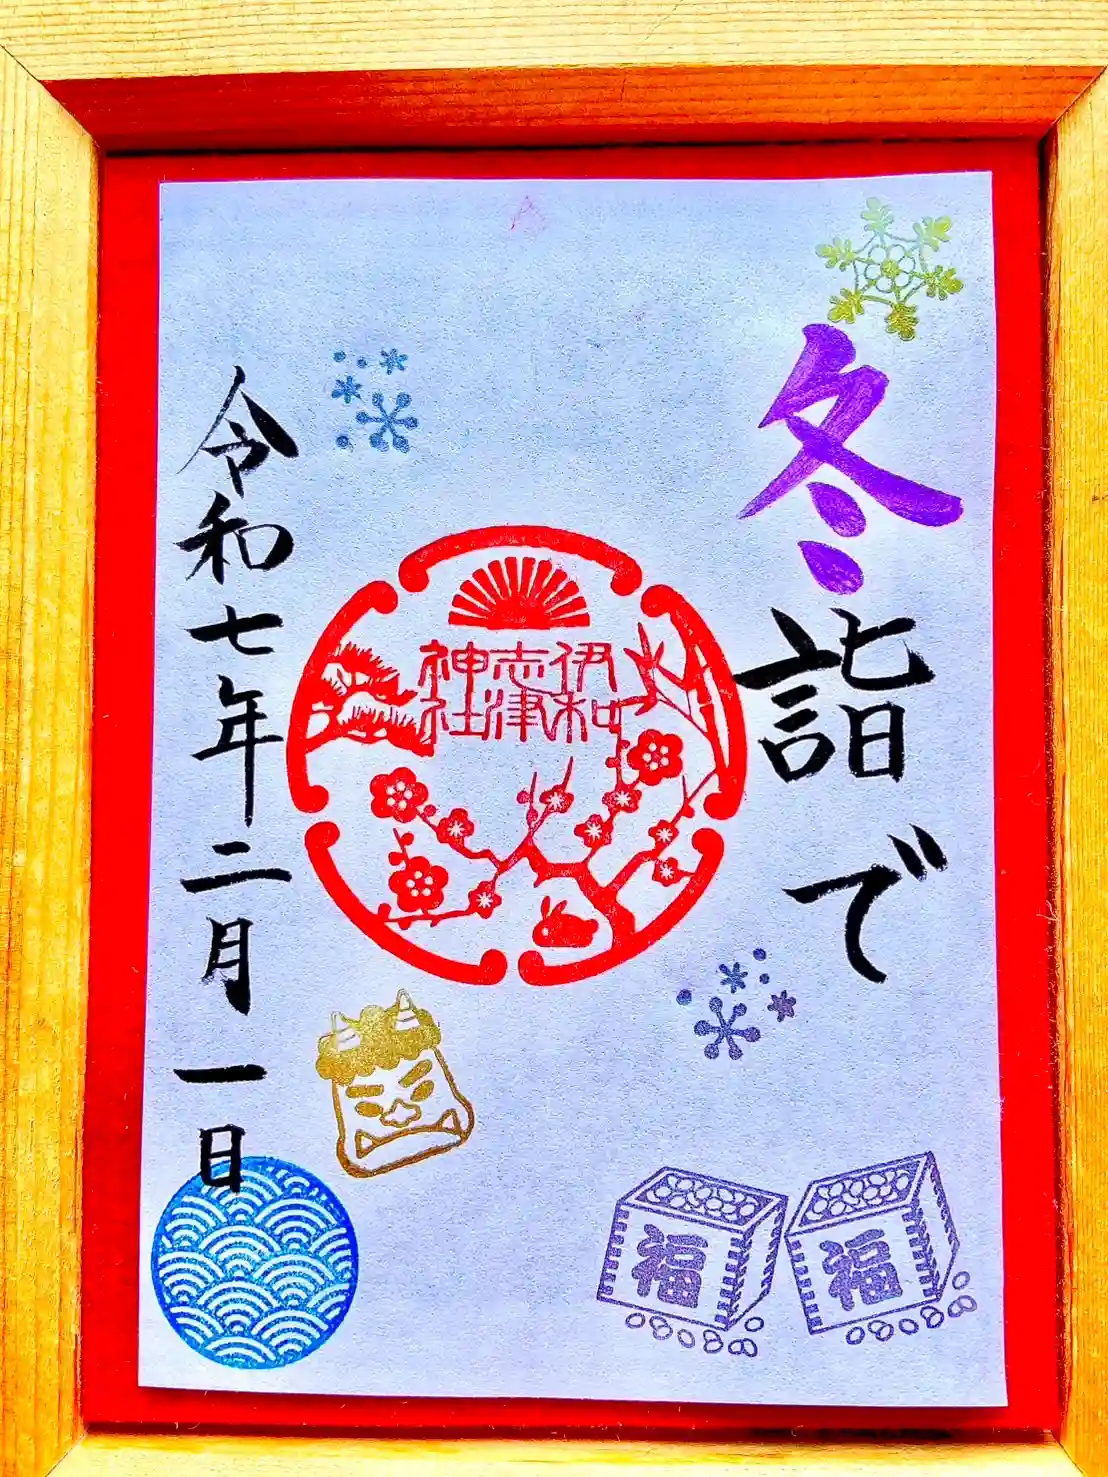 冬詣で
伊和
志津
神社
令和七年二月一日
福
福